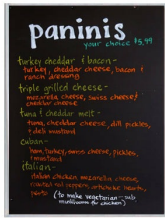 paninis
your choice $5.49
turkey cheddar & bacon -
turkey, cheddar cheese, bacon &
ranch dressing
triple grilled cheese -
mozzarella cheese, swiss cheese &
cheddar cheese
tuna & cheddar melt -
tuna, cheddar cheese, dill pickles,
+ deli mustard
cuban -
ham, turkey, swiss cheese, pickles,
+ mustard
italian -
italian chicken, mozzarella cheese,
roasted red peppers, artichoke hearts,
pesto
(to make vegetarian - sub
mushrooms for chicken)